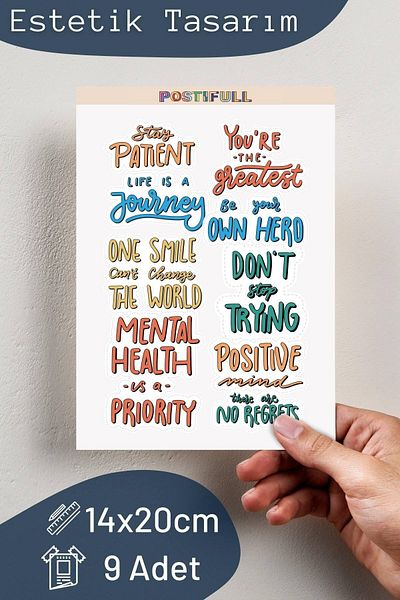 Estetik Tasarım
POSTIFULL
Stay
PATIENT
LIFE IS A
Journey
ONE SMILE
Can't Change
THE WORLD
MENTAL
HEALTH
-is a-
PRIORITY
YOU'RE
-THE-
greatest
Be your
OWN HERO
DON'T
stop
TRYING
POSITIVE
mind
there are
NO REGRETS
14x20cm
9 Adet